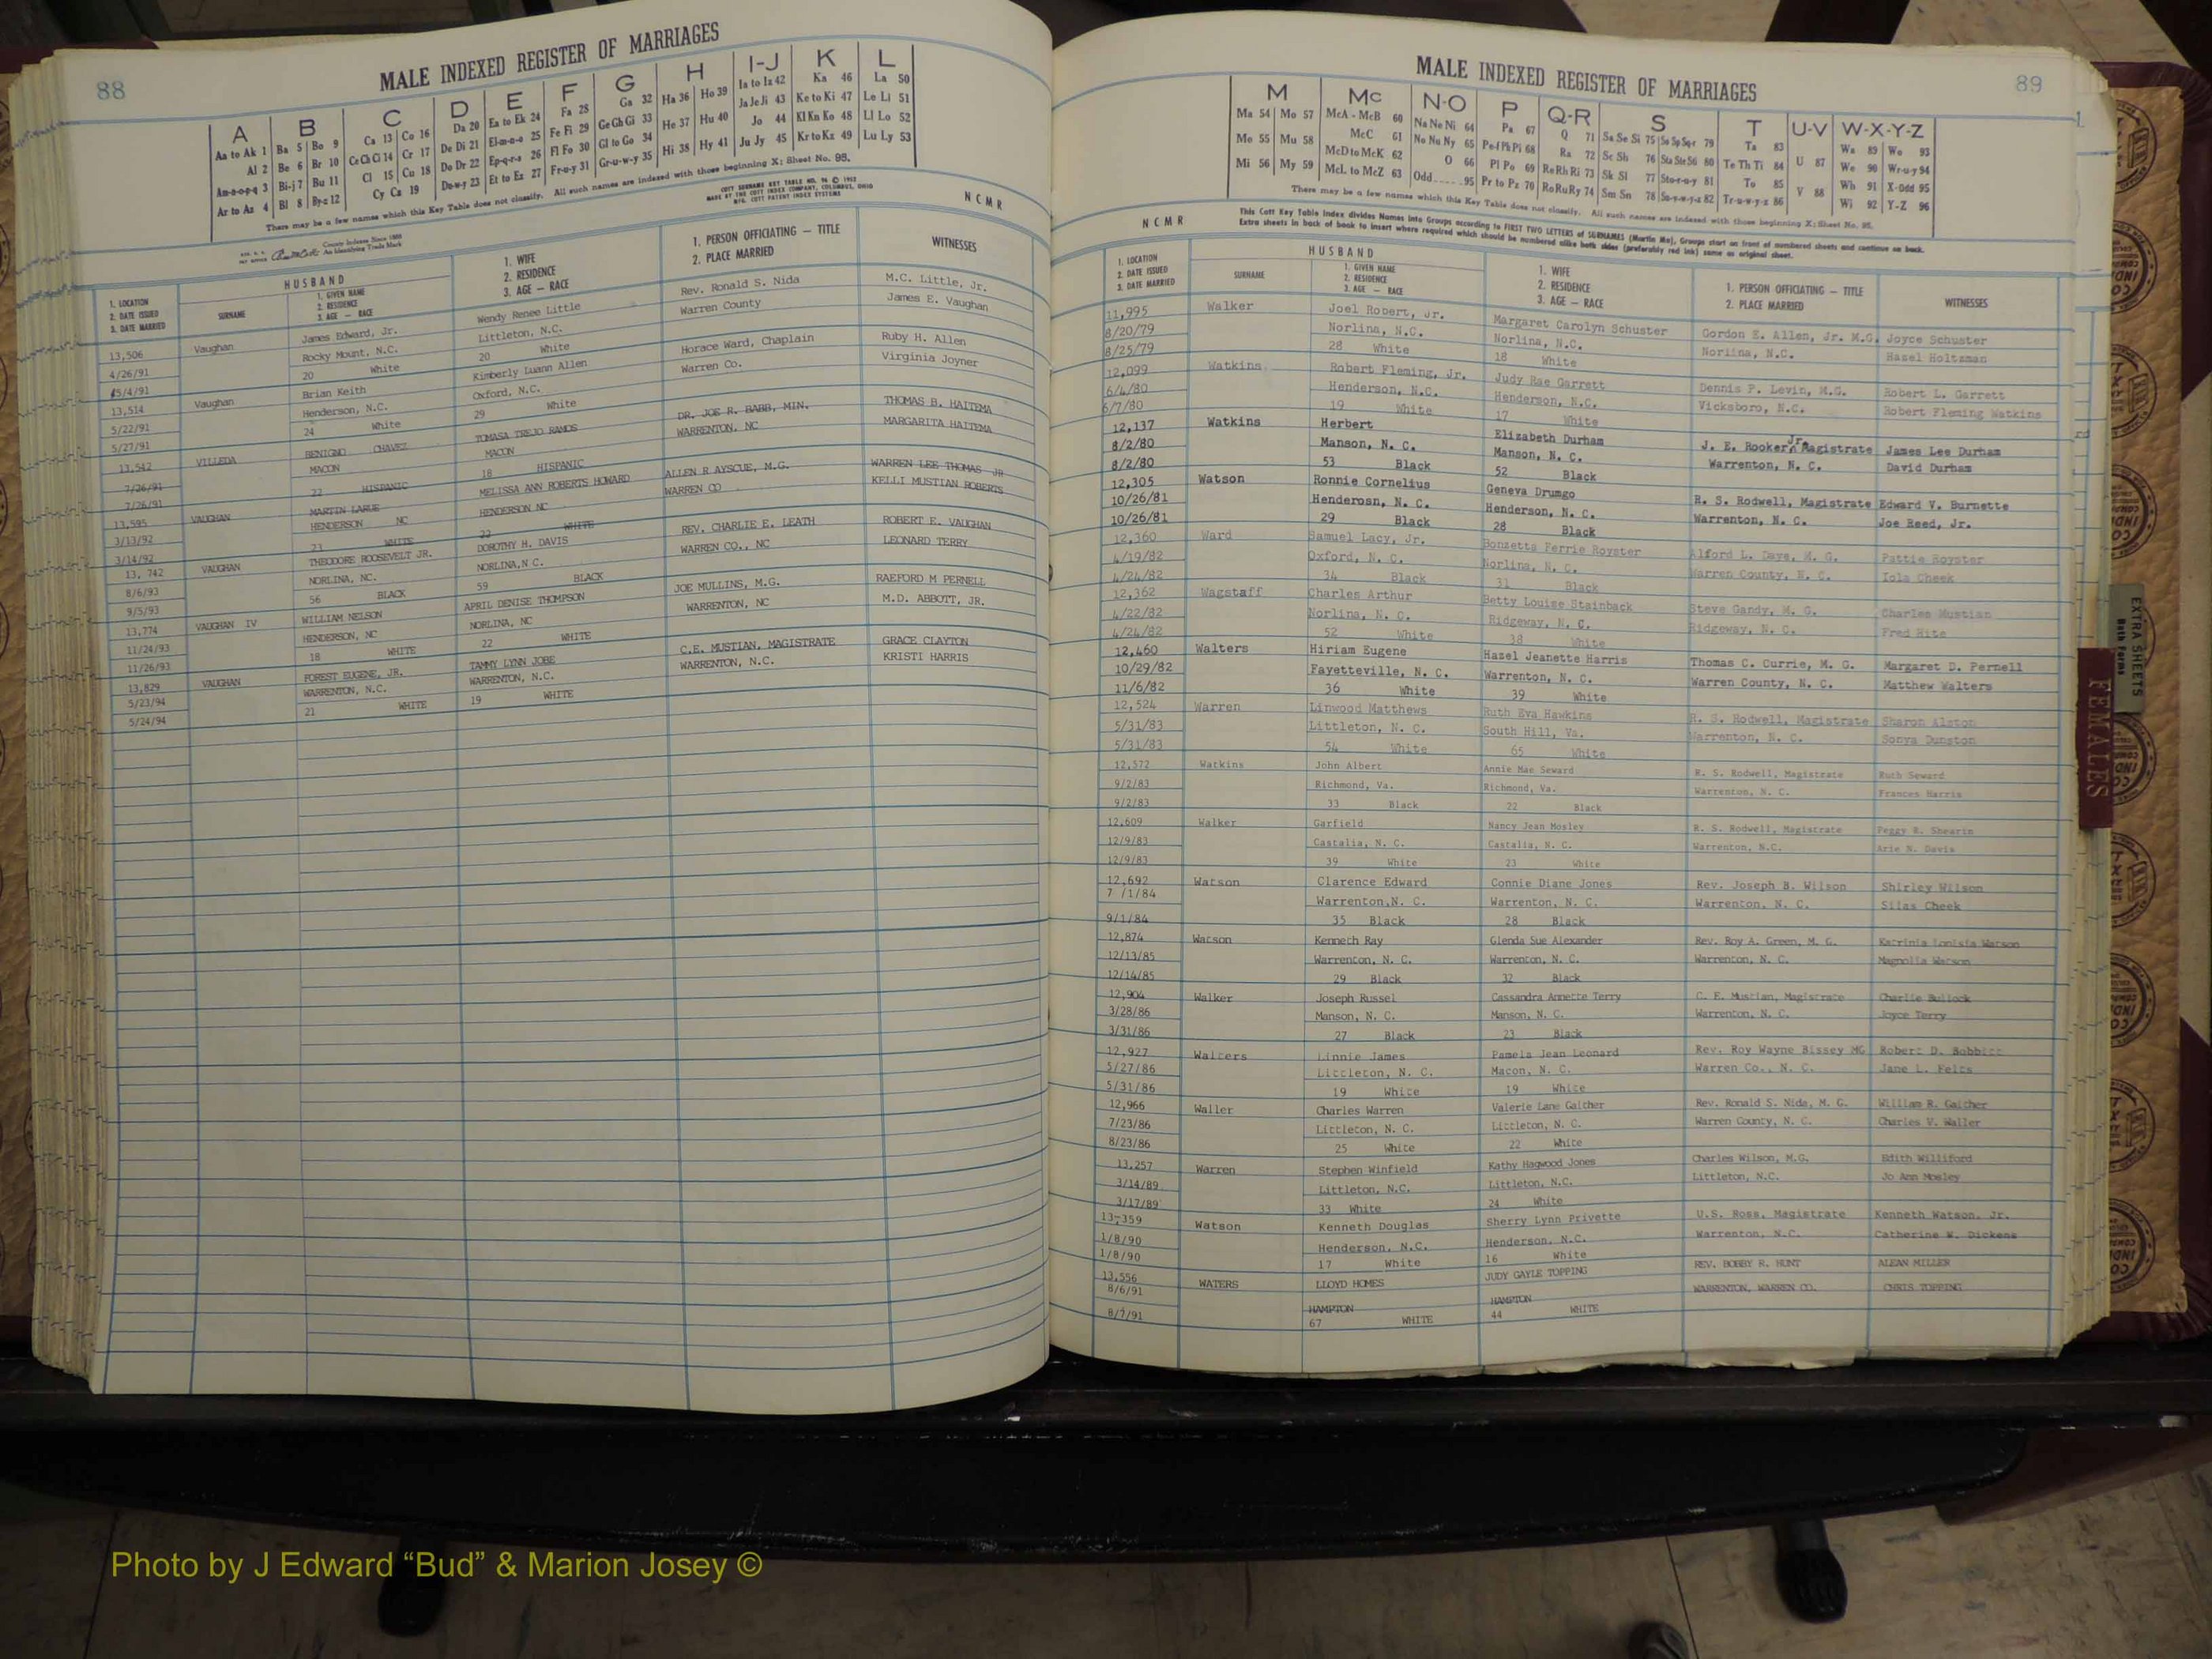 88
MALE INDEXED REGISTER OF MARRIAGES
A B C D E F G H I-J K L
Aa to Ak 1 Ba 5 Bo 9 Ca 13 Co 16 Da 20 Ea to Ek 24 Fa 28 Ga 32 Ha 36 Ho 39 Ia to Iz 42 Ka 46 La 50
Al 2 Be 6 Br 10 Ce Ch Ci 14 Cr 17 De Di 21 El-m-n-o 25 Fe Fi 29 Ge Gh Gi 33 He 37 Hu 40 Ja Je Ji 43 Ke to Ki 47 Le Li 51
Am-n-o-p-q 3 Bi-j 7 Bu 11 Cl 15 Cu 18 Do Dr 22 Ep-q-r-s 26 Fl Fo 30 Gl to Go 34 Hi 38 Hy 41 Jo 44 Kl Kn Ko 48 Ll Lo 52
Ar to Az 4 Bl 8 By-z 12 Cy Cz 19 Du-w-y 23 Et to Ez 27 Fr-u-y 31 Gr-u-w-y 35 Ju Jy 45 Kr to Kz 49 Lu Ly 53
There may be a few names which this Key Table does not classify. All such names are indexed with those beginning X; Sheet No. 95.
COTT SURNAME KEY TABLE NO. 96 © 1952
MADE BY THE COTT INDEX COMPANY, COLUMBUS, OHIO
MFG. COTT PATENT INDEX SYSTEMS
N C M R
County Indexes Since 1888
An Identifying Trade Mark
HUSBAND
1. LOCATION
2. DATE ISSUED
3. DATE MARRIED
SURNAME
1. GIVEN NAME
2. RESIDENCE
3. AGE — RACE
1. WIFE
2. RESIDENCE
3. AGE — RACE
1. PERSON OFFICIATING — TITLE
2. PLACE MARRIED
WITNESSES
13,506 Vaughan James Edward, Jr. Wendy Renee Little Rev. Ronald S. Nida M.C. Little, Jr.
4/26/91 Rocky Mount, N.C. Littleton, N.C. Warren County James E. Vaughan
5/4/91 20 White 20 White
13,514 Vaughan Brian Keith Kimberly Luann Allen Horace Ward, Chaplain Ruby H. Allen
5/22/91 Henderson, N.C. Oxford, N.C. Warren Co. Virginia Joyner
5/27/91 24 White 29 White
13,542 VILLEDA BENIGNO CHAVEZ TOMASA TREJO RAMOS DR. JOE R. BABB, MIN. THOMAS B. HAITEMA
7/26/91 MACON MACON WARRENTON, NC MARGARITA HAITEMA
7/26/91 22 HISPANIC 18 HISPANIC
13,595 VAUGHAN MARTIN LARUE MELISSA ANN ROBERTS HOWARD ALLEN R AYSCUE, M.G. WARREN LEE THOMAS JR
3/13/92 HENDERSON NC HENDERSON NC WARREN CO KELLI MUSTIAN ROBERTS
3/14/92 23 WHITE 22 WHITE
13, 742 VAUGHAN THEODORE ROOSEVELT JR. DOROTHY H. DAVIS REV. CHARLIE E. LEATH ROBERT E. VAUGHAN
8/6/93 NORLINA, NC. NORLINA,N C. WARREN CO., NC LEONARD TERRY
9/5/93 56 BLACK 59 BLACK
13,774 VAUGHAN IV WILLIAM NELSON APRIL DENISE THOMPSON JOE MULLINS, M.G. RAEFORD M PERNELL
11/24/93 HENDERSON, NC NORLINA, NC WARRENTON, NC M.D. ABBOTT, JR.
11/26/93 18 WHITE 22 WHITE
13,829 VAUGHAN FOREST EUGENE, JR. TAMMY LYNN JOBE C.E. MUSTIAN, MAGISTRATE GRACE CLAYTON
5/23/94 WARRENTON, N.C. WARRENTON, N.C. WARRENTON, N.C. KRISTI HARRIS
5/24/94 21 WHITE 19 WHITE
MALE INDEXED REGISTER OF MARRIAGES
89
M Mc N-O P Q-R S T U-V W-X-Y-Z
Ma 54 Mo 57 McA - McB 60 Na Ne Ni 64 Pa 67 Q 71 Sa Se Si 75 So Sp Sq 79 Ta 83 Wa 89 Wo 93
Me 55 Mu 58 McC 61 No Nu Ny 65 Pe-f Ph Pi 68 Ra 72 Sc Sh 76 Sta Ste 80 Te Th Ti 84 U 87 We 90 Wr-u-y 94
Mi 56 My 59 McD to McK 62 O 66 Pl Po 69 Re Rh Ri 73 Sk Sl 77 Sto-r-u-y 81 To 85 Wh 91 X-Odd 95
McL to McZ 63 Odd 95 Pr to Pz 70 Ro Ru Ry 74 Sm Sn 78 Su-v-w-y-z 82 Tr-u-w-y-z 86 V 88 Wi 92 Y-Z 96
There may be a few names which this Key Table does not classify. All such names are indexed with those beginning X; Sheet No. 95.
N C M R
This Cott Key Table Index divides Names into Groups according to FIRST TWO LETTERS of SURNAMES (Martin Ma), Groups start on front of numbered sheets and continue on back.
Extra sheets in back of book to insert where required which should be numbered alike both sides (preferably red ink) same as original sheet.
HUSBAND
1. LOCATION
2. DATE ISSUED
3. DATE MARRIED
SURNAME
1. GIVEN NAME
2. RESIDENCE
3. AGE — RACE
1. WIFE
2. RESIDENCE
3. AGE — RACE
1. PERSON OFFICIATING — TITLE
2. PLACE MARRIED
WITNESSES
11,995 Walker Joel Robert, Jr. Margaret Carolyn Schuster Gordon E. Allen, Jr. M.G. Joyce Schuster
8/20/79 Norlina, N.C. Norlina, N.C. Norlina, N.C. Hazel Holtzman
8/25/79 28 White 18 White
12,099 Watkins Robert Fleming, Jr. Judy Rae Garrett Dennis P. Levin, M.G. Robert L. Garrett
6/4/80 Henderson, N.C. Henderson, N.C. Vicksboro, N.C. Robert Fleming Watkins
6/7/80 19 White 17 White
12,137 Watkins Herbert Elizabeth Durham J. E. Rooker, Jr. Magistrate James Lee Durham
8/2/80 Manson, N. C. Manson, N. C. Warrenton, N. C. David Durham
8/2/80 53 Black 52 Black
12,305 Watson Ronnie Cornelius Geneva Drumgo R. S. Rodwell, Magistrate Edward V. Burnette
10/26/81 Henderosn, N. C. Henderson, N. C. Warrenton, N. C. Joe Reed, Jr.
10/26/81 29 Black 28 Black
12,360 Ward Samuel Lacy, Jr. Bonzetta Ferrie Royster Alford L. Daye, M. G. Pattie Royster
4/19/82 Oxford, N. C. Norlina, N. C. Warren County, N. C. Iola Cheek
4/24/82 34 Black 31 Black
12,362 Wagstaff Charles Arthur Betty Louise Stainback Steve Gandy, M. G. Charles Mustian
4/22/82 Norlina, N. C. Ridgeway, N. C. Ridgeway, N. C. Fred Hite
4/24/82 52 White 38 White
12,460 Walters Hiriam Eugene Hazel Jeanette Harris Thomas C. Currie, M. G. Margaret D. Pernell
10/29/82 Fayetteville, N. C. Warrenton, N. C. Warren County, N. C. Matthew Walters
11/6/82 36 White 39 White
12,524 Warren Linwood Matthews Ruth Eva Hawkins R. S. Rodwell, Magistrate Sharon Alston
5/31/83 Littleton, N. C. South Hill, Va. Warrenton, N. C. Sonya Dunston
5/31/83 54 White 65 White
12,572 Watkins John Albert Annie Mae Seward R. S. Rodwell, Magistrate Ruth Seward
9/2/83 Richmond, Va. Richmond, Va. Warrenton, N. C. Frances Harris
9/2/83 33 Black 22 Black
12,609 Walker Garfield Nancy Jean Mosley R. S. Rodwell, Magistrate Peggy R. Shearin
12/9/83 Castalia, N. C. Castalia, N. C. Warrenton, N.C. Arie N. Davis
12/9/83 39 White 23 White
12,692 Watson Clarence Edward Connie Diane Jones Rev. Joseph B. Wilson Shirley Wilson
7 /1/84 Warrenton,N. C. Warrenton, N. C. Warrenton, N. C. Silas Cheek
9/1/84 35 Black 28 Black
12,874 Watson Kenneth Ray Glenda Sue Alexander Rev. Roy A. Green, M. G. Katrinia Watson
12/13/85 Warrenton, N. C. Warrenton, N. C. Warrenton, N. C. Magnolia Watson
12/14/85 29 Black 32 Black
12,904 Walker Joseph Russel Cassandra Annette Terry C. E. Mustian, Magistrate Charlie Bullock
3/28/86 Manson, N. C. Manson, N. C. Warrenton, N. C. Joyce Terry
3/31/86 27 Black 23 Black
12,927 Walters Linnie James Pamela Jean Leonard Rev. Roy Wayne Bissey MG Robert D. Bobbitt
5/27/86 Littleton, N. C. Macon, N. C. Warren Co., N. C. Jane L. Felts
5/31/86 19 White 19 White
12,966 Waller Charles Warren Valerie Lane Gaither Rev. Ronald S. Nida, M. G. William R. Gaither
7/23/86 Littleton, N. C. Littleton, N. C. Warren County, N. C. Charles V. Waller
8/23/86 25 White 22 White
13,257 Warren Stephen Winfield Kathy Hagwood Jones Charles Wilson, M.G. Edith Williford
3/14/89 Littleton, N.C. Littleton, N.C. Littleton, N.C. Jo Ann Mosley
3/17/89 33 White 24 White
13-359 Watson Kenneth Douglas Sherry Lynn Privette U.S. Ross, Magistrate Kenneth Watson, Jr.
1/8/90 Henderson, N.C. Henderson, N.C. Warrenton, N.C. Catherine W. Dickens
1/8/90 17 White 16 White
13,556 WATERS LLOYD HOMES JUDY GAYLE TOPPING REV. BOBBY R. HUNT ALEAN MILLER
8/6/91 HAMPTON HAMPTON WARRENTON, WARREN CO. CHRIS TOPPING
8/7/91 67 WHITE 44 WHITE
EXTRA SHEETS
Both Forms
FEMALES
Photo by J Edward “Bud” & Marion Josey ©